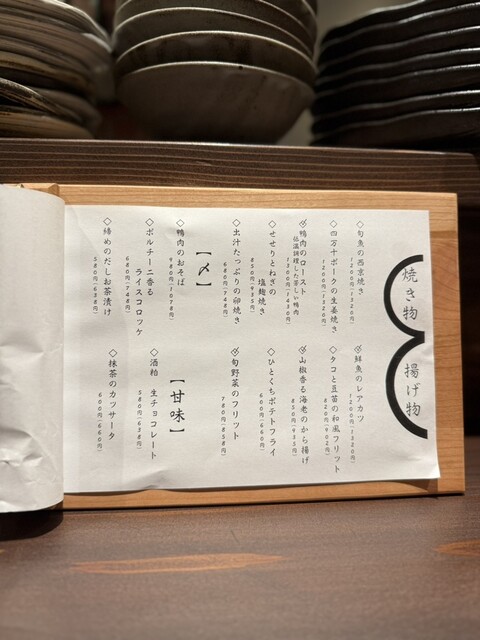 焼き物
◇旬魚の西京焼き
1200円(1320円)
◇四万十ポークの生姜焼き
1200円(1320円)
◇鴨肉のロースト
低温調理した芳しい鴨肉
1300円(1430円)
◇せせりとねぎの
塩麹焼き
850円(935円)
◇出汁たっぷりの卵焼き
680円(748円)
【〆】
◇鴨肉のおそば
980円(1078円)
◇ポルチーニ香る
ライスコロッケ
680円(748円)
◇締めのだしお茶漬け
580円(638円)
揚げ物
◇鮮魚のレアカツ
1200円(1320円)
◇タコと豆苗の和風フリット
820円(902円)
◇山椒香る海老のから揚げ
850円(935円)
◇ひとくちポテトフライ
600円(660円)
◇旬野菜のフリット
780円(858円)
【甘味】
◇酒粕 生チョコレート
580円(638円)
◇抹茶のカッサータ
600円(660円)